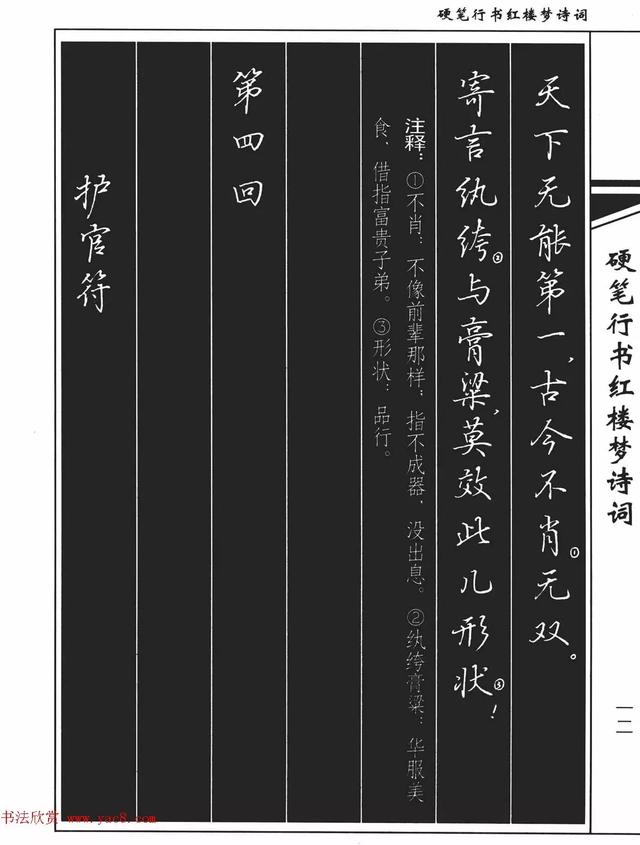 硬笔行书红楼梦诗词
天下无能第一,古今不肖①无双。
寄言纨绔②与膏粱,莫效此儿形状③!
注释：①不肖：不像前辈那样；指不成器、没出息。②纨绔膏粱：华服美
食、借指富贵子弟。③形状：品行。
第四回
护官符
硬笔行书红楼梦诗词
一二
书法欣赏 www.yac8.com